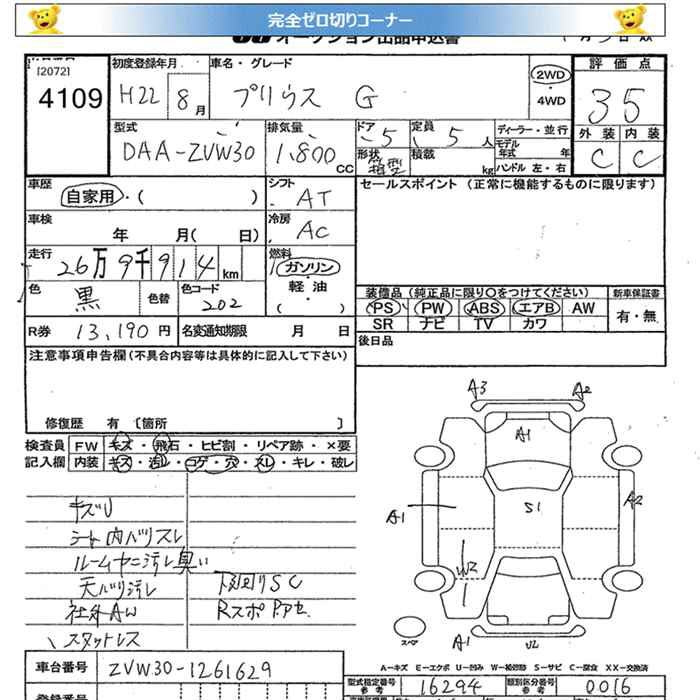 完全ゼロ切りコーナー
オークション出品申込書
[2072]
4109
初度登録年月
H22 8月
車名・グレード
プリウス G
2WD
・
4WD
評価点
35
外装 内装
C C
型式
DAA-ZVW30
排気量
1,800 CC
ドア 5
定員 5人
ディーラー・並行
形状 箱型
積載 kg
モデル年式 年
ハンドル 左・右
車歴
自家用・( )
シフト
AT
セールスポイント (正常に機能するものに限ります)
車検
年 月( 日)
冷房
AC
走行
26万9千914km
燃料
ガソリン・
軽油・
( )
色
黒
色替
色コード
202
装備品(純正品に限り○をつけてください)
新車保証書
PS PW ABS エアB AW
有・無
SR ナビ TV カワ
R券 13,190円
名変通知期限 月 日
後日品
注意事項申告欄(不具合内容等は具体的に記入して下さい)
修復歴 有 [箇所 ]
検査員
記入欄
FW キズ・飛石・ヒビ割・リペア跡・×要
内装 キズ・汚レ・コゲ・穴・スレ・キレ・破レ
キズU
シート内バリスレ
ルームヤニ汚レ臭い
天バリ汚レ
下廻りSC
社外AW
スタッドレス
A3 A2
A1
A1 S1 A2
W2
スペア
A1 U2
A-キズ E-エクボ U-凹み W-補修跡 S-サビ C-腐食 XX-交換済
車台番号
ZVW30-1261629
型式指定番号
参考
16294
類別区分番号
参考
0016
登録番号